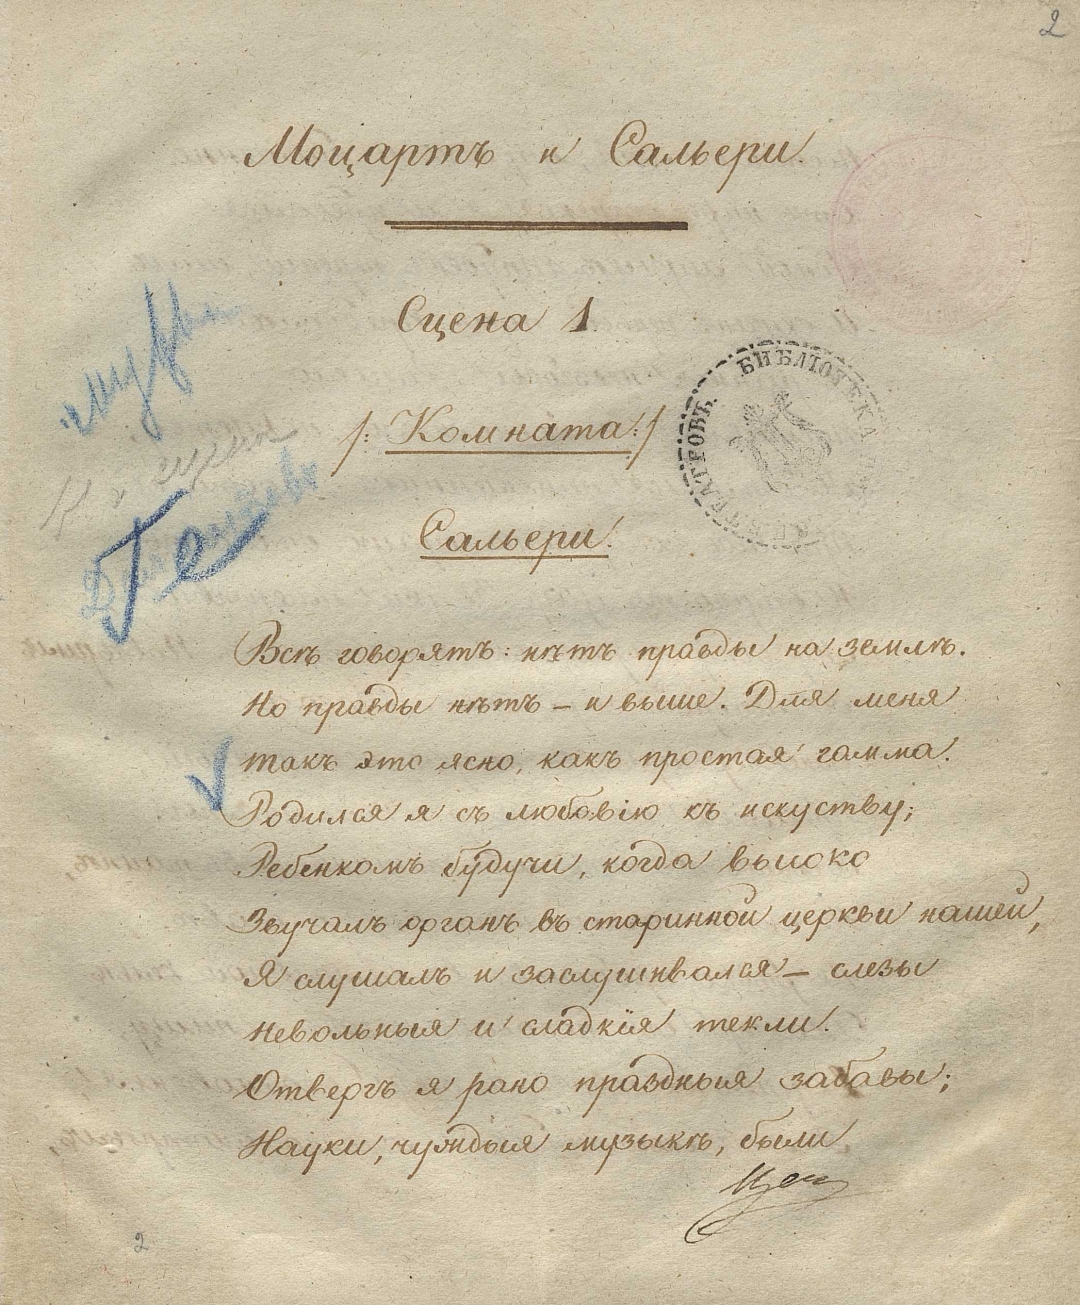 2
Моцартъ и Сальери.
Сцена 1
/: Комната :/
БИБЛІОТЕКА
ТЕАТРОВЪ
Сальери.
Всѣ говорятъ: нѣтъ правды на землѣ.
Но правды нѣтъ – и выше. Для меня
такъ это ясно, какъ простая гамма.
Родился я съ любовію къ искуству;
Ребенкомъ будучи, когда высоко
Звучалъ органъ въ старинной церкви нашей,
Я слушалъ и заслушивался – слезы
невольныя и сладкія текли.
Отвергъ я рано праздныя забавы;
Науки, чуждыя музыкѣ, были
2